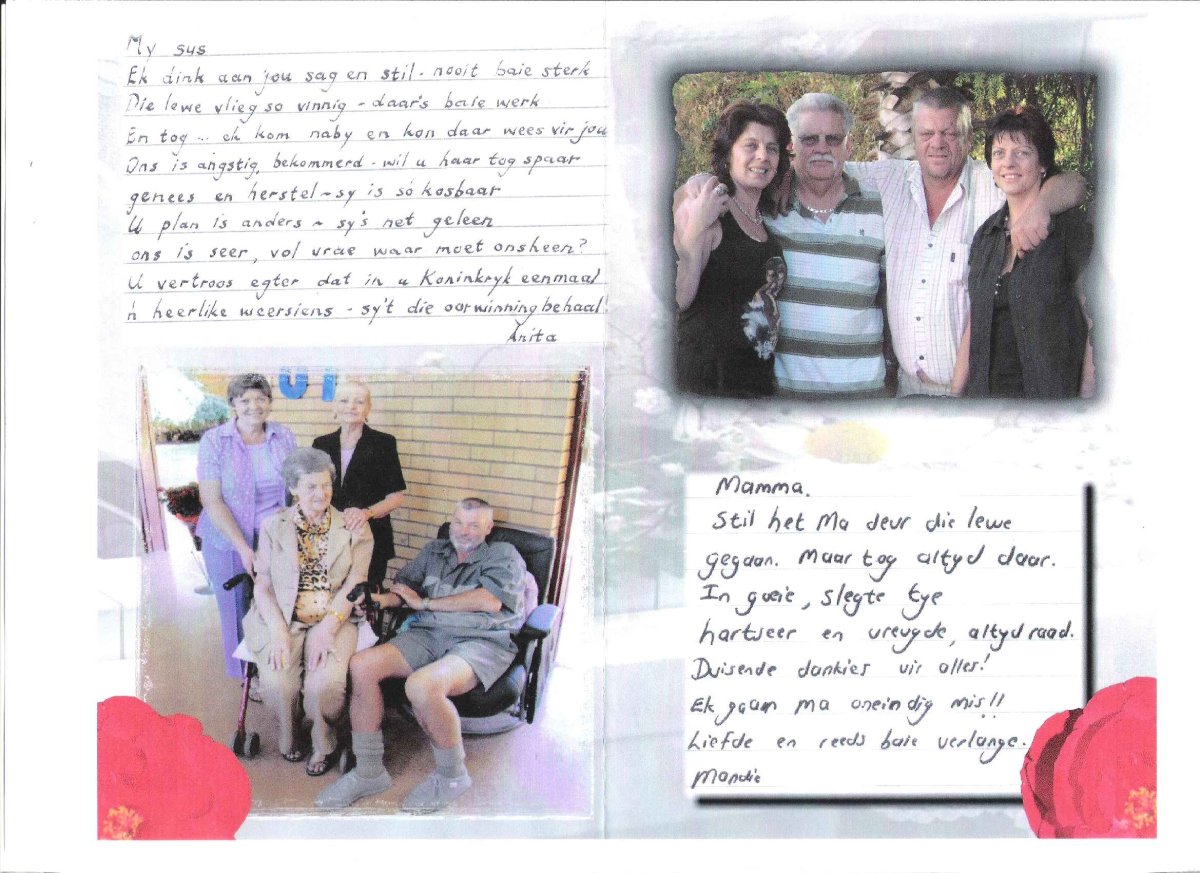 My sus
Ek dink aan jou sag en stil - nooit baie sterk
Die lewe vlieg so vinnig - daar's baie werk
En tog ... ek kom naby en kon daar wees vir jou
Ons is angstig, bekommerd - wil u haar tog spaar
genees en herstel - sy is só kosbaar
U plan is anders - sy's net geleen
ons is seer, vol vrae waar moet ons heen?
U vertroos egter dat in u Koninkryk eenmaal
'n heerlike weersiens - sy't die oorwinning behaal!
Anita
Mamma.
Stil het Ma deur die lewe
gegaan. Maar tog altyd daar.
In goeie, slegte tye
hartseer en vreugde, altyd raad.
Duisende dankies vir alles!
Ek gaan ma oneindig mis!!
Liefde en reeds baie verlange.
Mandie